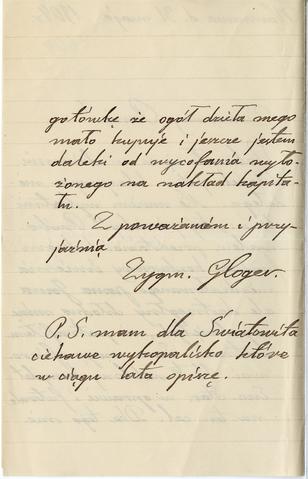 gotówkę że ogół dzieła mego
mało kupuje i jeszcze jestem
daleki od wycofania wyło-
żonego na nakład kapita-
łu.
Z poważaniem i przy-
jaźnią
Zygm. Gloger.
P. S. mam dla Światowita
ciekawe wykopalisko które
w ciągu lata opiszę.